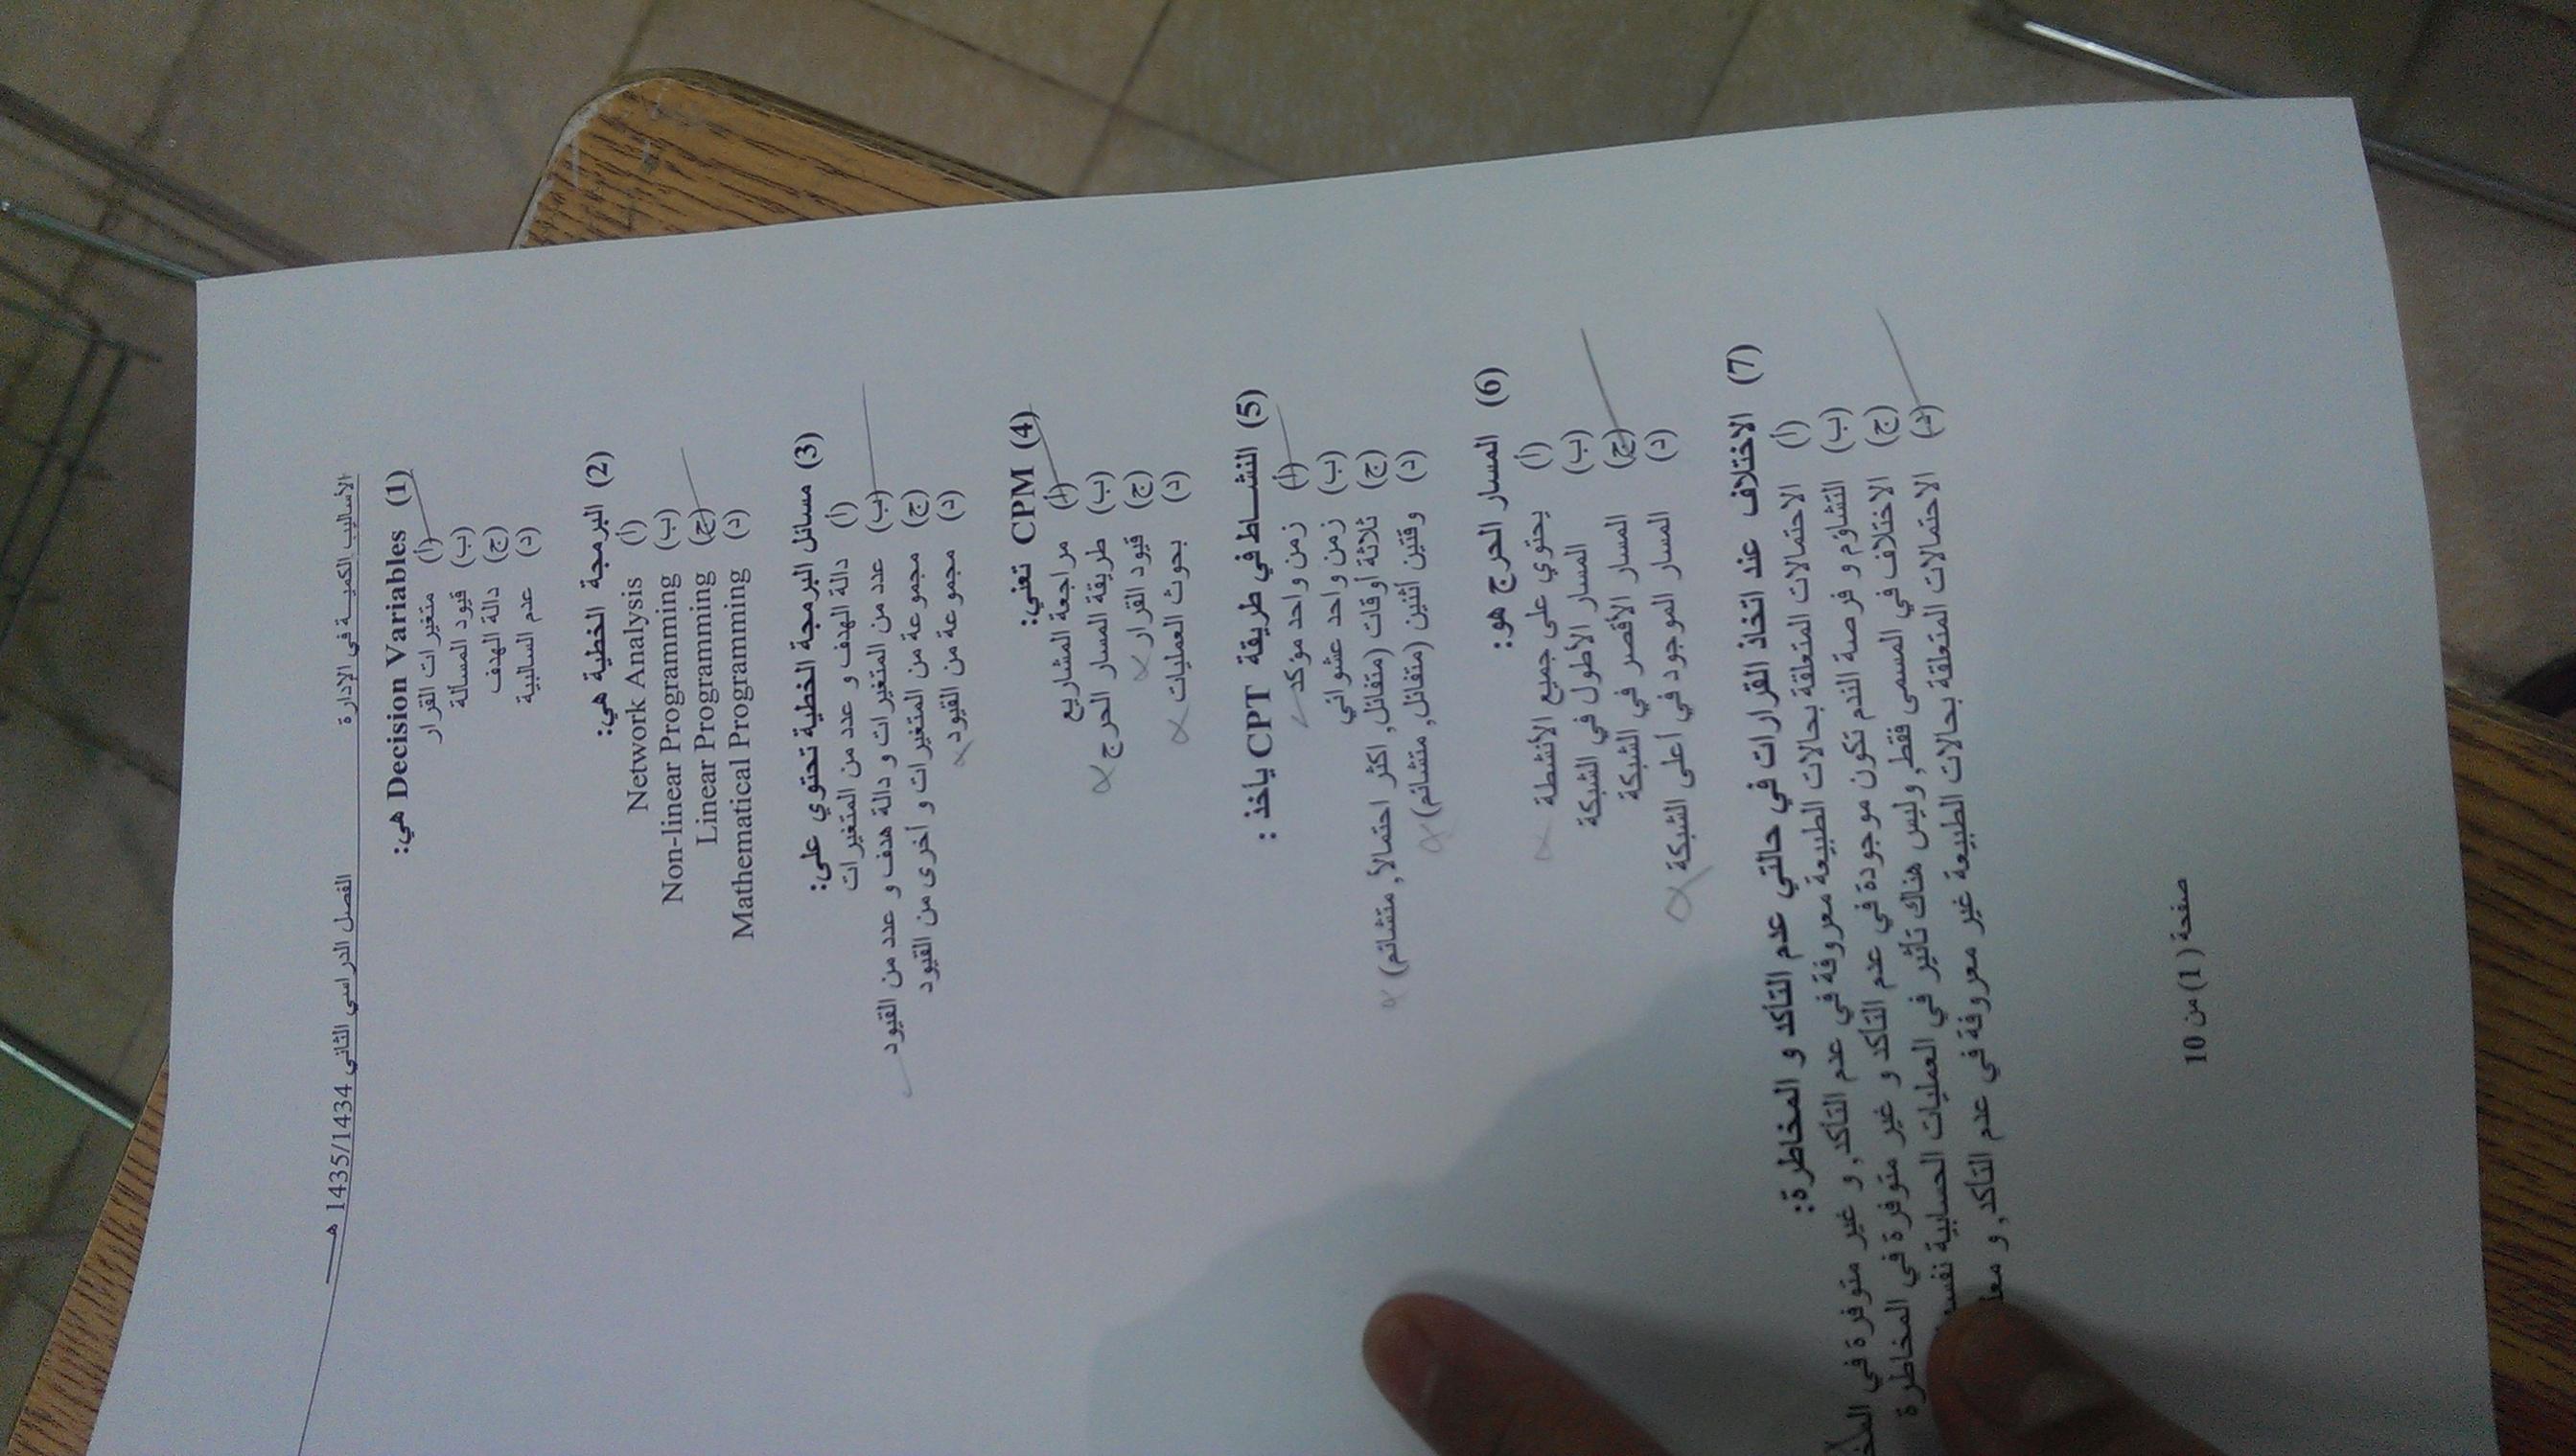 الأساليب الكمية في الإدارة
الفصل الدراسي الثاني 1435/1434 هـ
(1) Decision Variables هي:
(أ) متغيرات القرار
(ب) قيود المسألة
(ج) دالة الهدف
(د) عدم السالبية
(2) البرمجة الخطية هي:
(أ) Network Analysis
(ب) Non-linear Programming
(ج) Linear Programming
(د) Mathematical Programming
(3) مسائل البرمجة الخطية تحتوي على:
(أ) دالة الهدف و عدد من المتغيرات
(ب) عدد من المتغيرات و دالة هدف و عدد من القيود
(ج) مجموعة من المتغيرات و أخرى من القيود
(د) مجموعة من القيود
(4) CPM تعني:
(أ) مراجعة المشاريع
(ب) طريقة المسار الحرج
(ج) قيود القرار
(د) بحوث العمليات
(5) النشاط في طريقة CPT يأخذ :
(أ) زمن واحد مؤكد
(ب) زمن واحد عشوائي
(ج) ثلاثة أوقات (متفائل, اكثر احتمالاً, متشائم)
(د) وقتين أثنين (متفائل, متشائم)
(6) المسار الحرج هو:
(أ) يحتوي على جميع الأنشطة
(ب) المسار الأطول في الشبكة
(ج) المسار الأقصر في الشبكة
(د) المسار الموجود في أعلى الشبكة
(7) الاختلاف عند اتخاذ القرارات في حالتي عدم التأكد و المخاطرة:
(أ) الاحتمالات المتعلقة بحالات الطبيعة معروفة في عدم التأكد, و غير متوفرة في
(ب) التشاؤم و فرصة الندم تكون موجودة في عدم التأكد و غير متوفرة في المخاطرة
(ج) الاختلاف في المسمى فقط, وليس هناك تأثير في العمليات الحسابية
(د) الاحتمالات المتعلقة بحالات الطبيعة غير معروفة في عدم التأكد, و
صفحة (1) من 10